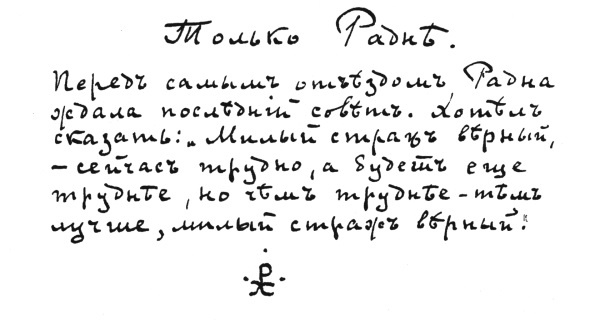 Только Раднѣ.
Передъ самымъ отъѣздомъ Радна
ждала послѣдній совѣтъ. Хотѣлъ
сказать: „Милый стражъ вѣрный,
— сейчасъ трудно, а будетъ еще
труднѣе, но чѣмъ труднѣе – тѣмъ
лучше, милый стражъ вѣрный".